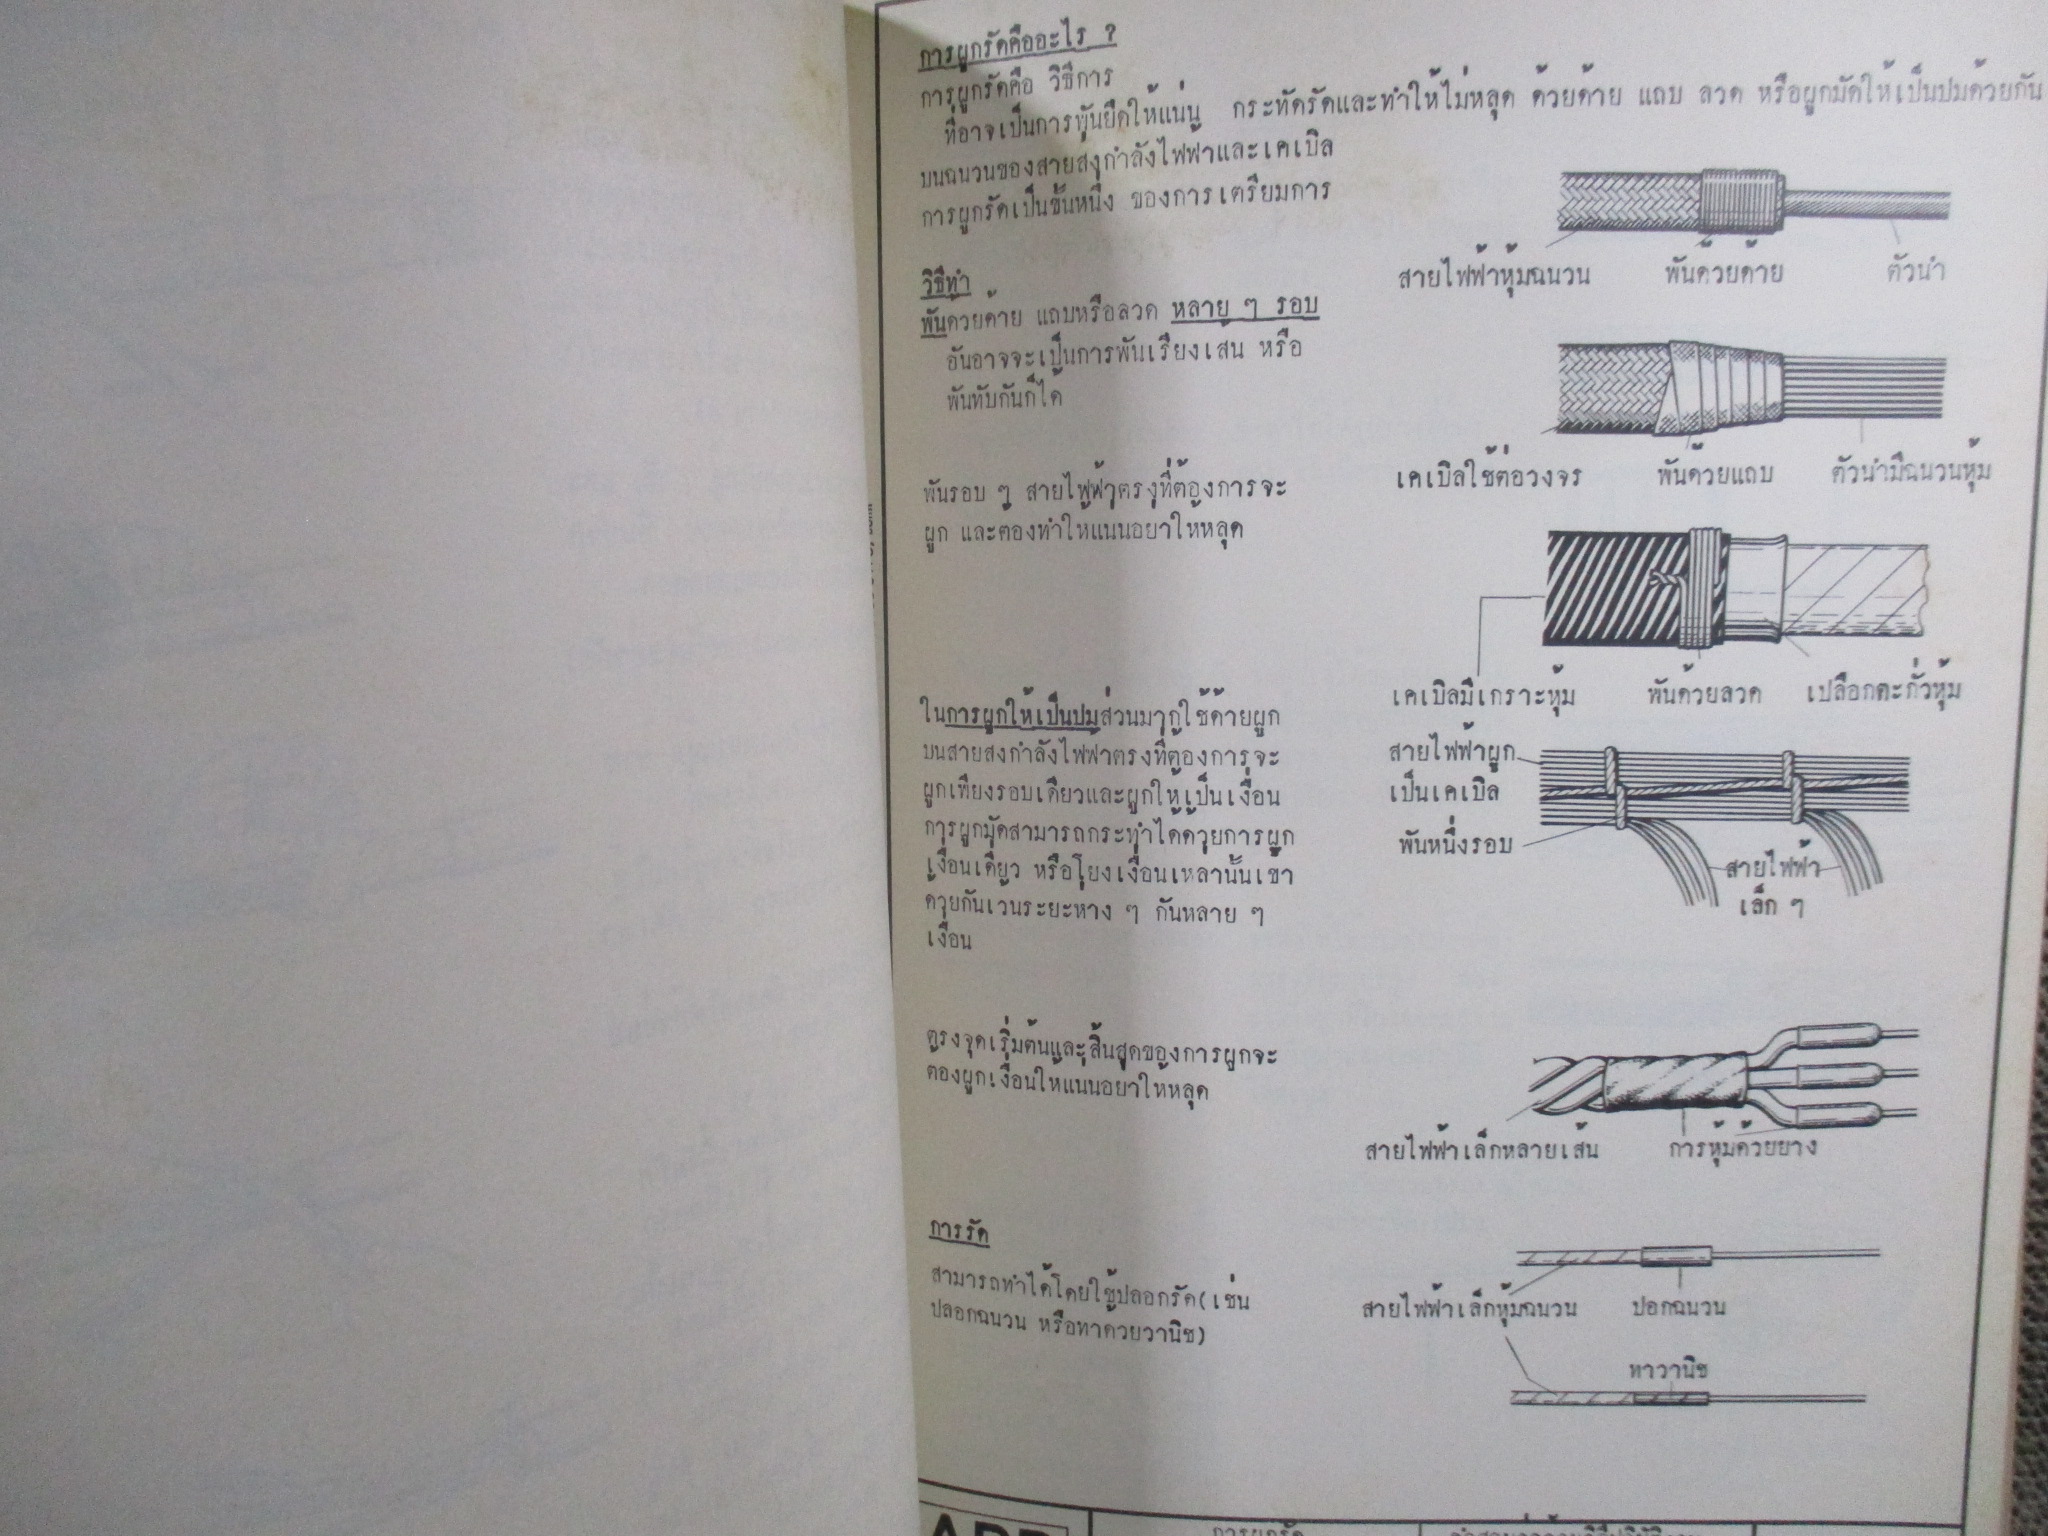 การผูกรัดคืออะไร ?
การผูกรัดคือ วิธีการ
ที่อาจเป็นการพันยึดให้แน่น กระทัดรัดและทำให้ไม่หลุด ด้วยด้าย แถบ ลวด หรือผูกมัดให้เป็นปมด้วยกัน
บนฉนวนของสายส่งกำลังไฟฟ้าและเคเบิล
การผูกรัดเป็นขั้นหนึ่ง ของการเตรียมการ
สายไฟฟ้าหุ้มฉนวน
พันด้วยด้าย
ตัวนำ
วิธีทำ
พันด้วยด้าย แถบหรือลวด หลาย ๆ รอบ
อันอาจจะเป็นการพันเรียงเส้น หรือ
พันทับกันก็ได้
เคเบิลใช้ต่อวงจร
พันด้วยแถบ
ตัวนำมีฉนวนหุ้ม
พันรอบ ๆ สายไฟฟ้าตรงที่ต้องการจะ
ผูก และต้องทำให้แน่นอย่าให้หลุด
เคเบิลมีเกราะหุ้ม
พันด้วยลวด
เปลือกตะกั่วหุ้ม
ในการผูกให้เป็นปมส่วนมากใช้ด้ายผูก
บนสายส่งกำลังไฟฟ้าตรงที่ต้องการจะ
ผูกเพียงรอบเดียวและผูกให้เป็นเงื่อน
การผูกมัดสามารถกระทำได้ด้วยการผูก
เงื่อนเดียว หรือโยงเงื่อนเหล่านั้นเข้า
ด้วยกันเว้นระยะห่าง ๆ กันหลาย ๆ
เงื่อน
สายไฟฟ้าผูก
เป็นเคเบิล
พันหนึ่งรอบ
สายไฟฟ้า
เล็ก ๆ
ตรงจุดเริ่มต้นและสิ้นสุดของการผูกจะ
ต้องผูกเงื่อนให้แน่นอย่าให้หลุด
สายไฟฟ้าเล็กหลายเส้น
การหุ้มด้วยยาง
การรัด
สามารถทำได้โดยใช้ปลอกรัด(เช่น
ปลอกฉนวน หรือทาด้วยวานิช)
สายไฟฟ้าเล็กหุ้มฉนวน
ปอกฉนวน
ทาวานิช
การผูกรัด